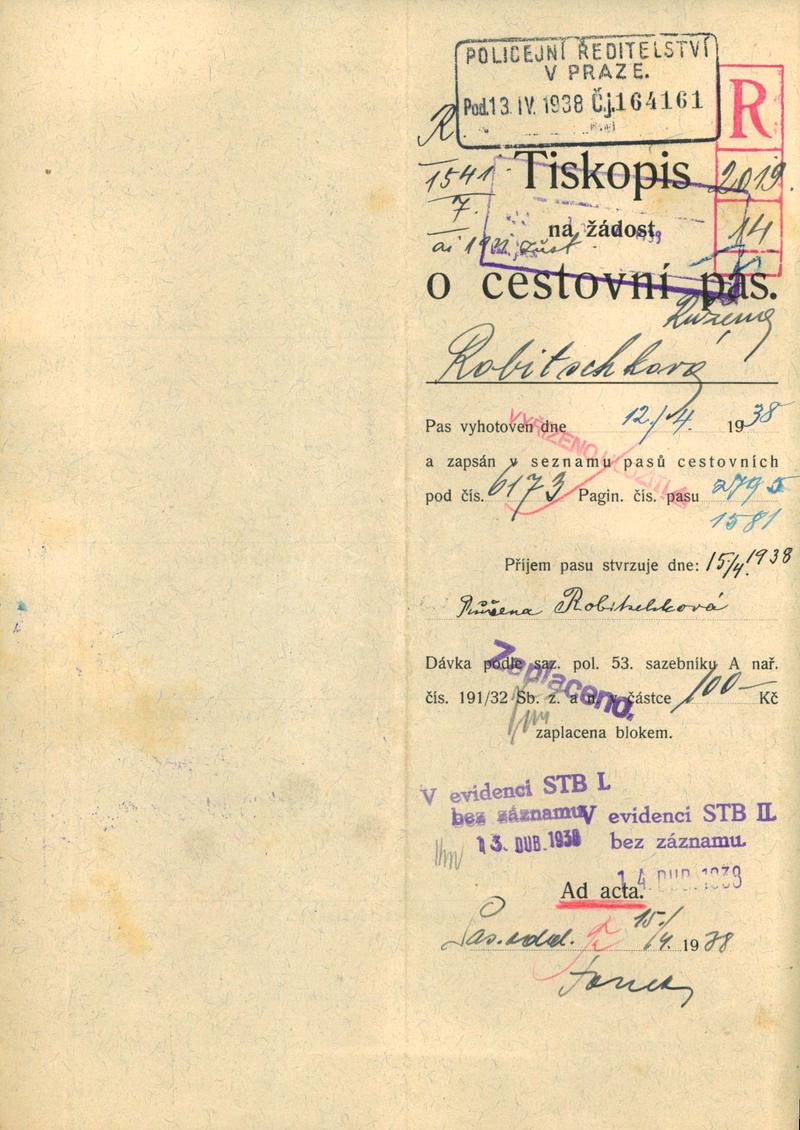 POLICEJNÍ ŘEDITELSTVÍ
V PRAZE.
Pod.13. IV. 1938 Č.j.164161
R
R
1541
7.
Tiskopis
2019.
na žádost
14
o cestovní pas.
Růžena
Robitschková
Pas vyhotoven dne 12./4. 1938
VYŘÍZENO
a zapsán v seznamu pasů cestovních
pod čís. 6173 Pagin. čís. pasu 2795
1581
Příjem pasu stvrzuje dne: 15/4. 1938
Růžena Robitschková
Dávka podle saz. pol. 53. sazebníku A nař.
čís. 191/32 Sb. z. a n. v částce 100— Kč
Zaplaceno.
zaplacena blokem.
V evidenci STB I.
bez záznamu
13. DUB. 1938
V evidenci STB II.
bez záznamu.
14. DUB. 1938
Ad acta.
Pas. odd. 15./4. 1938